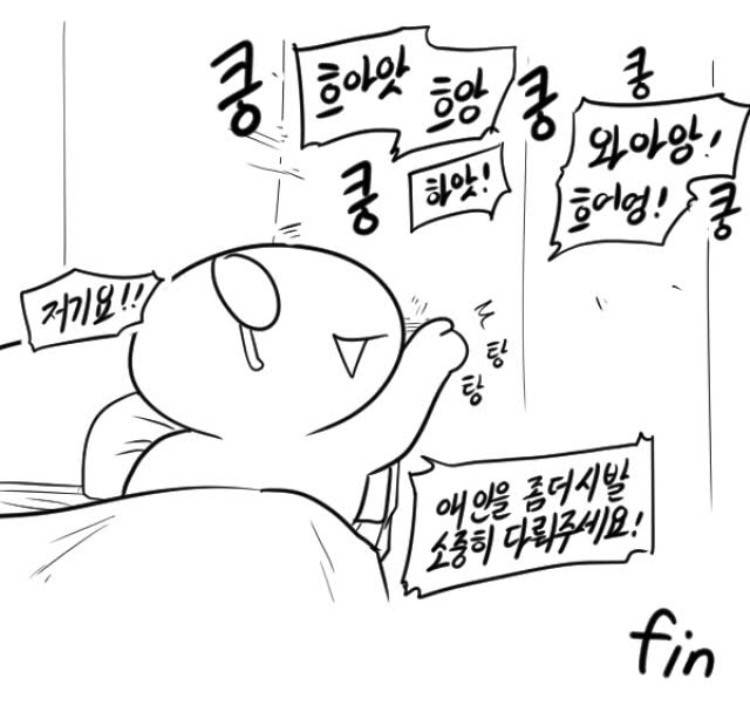 쿵
흐아앗
흐앙
쿵
쿵
와아앙!
흐어엉!
쿵
하앗!
쿵
저기요!!
탕
탕
애인을 좀더 시발
소중히 다뤄주세요!
fin